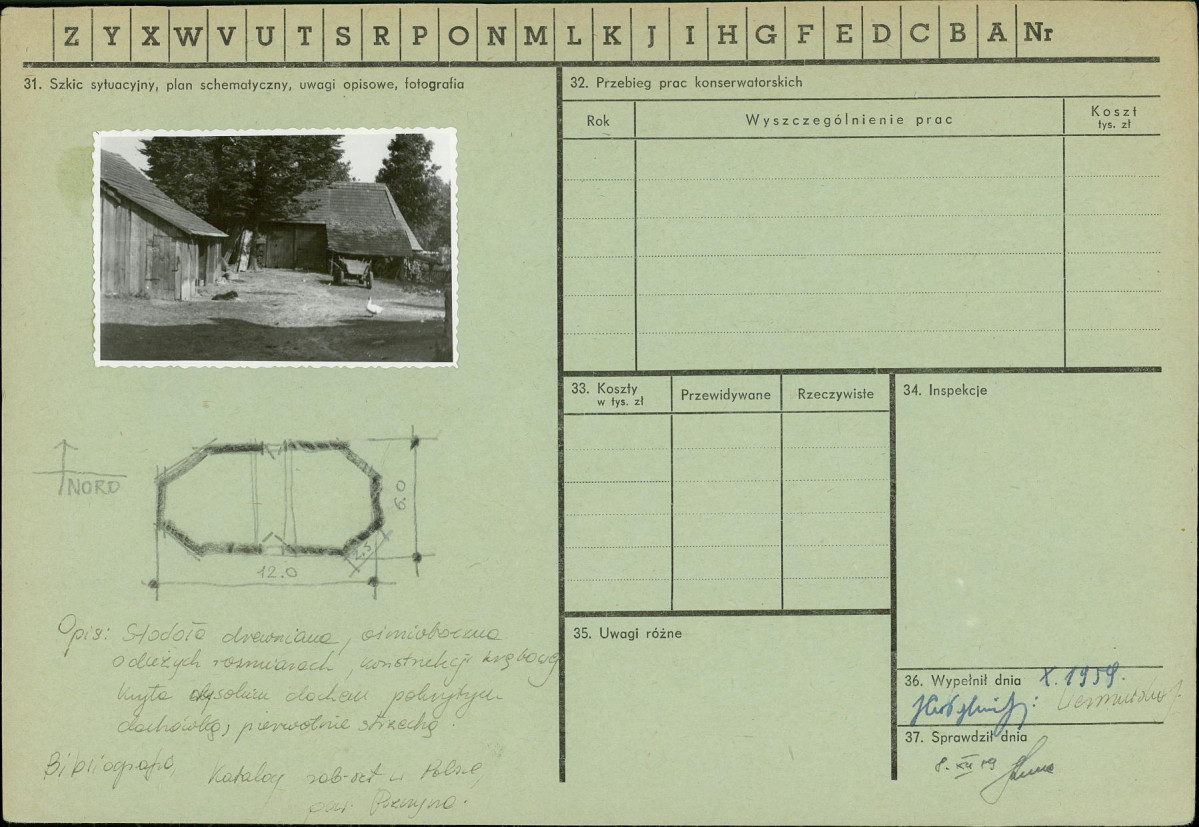 Z Y X W V U T S R P O N M L K J I H G F E D C B A Nr
31. Szkic sytuacyjny, plan schematyczny, uwagi opisowe, fotografia
NORD
6.0
2.5
12.0
Opis: Stodoła drewniana, ośmioboczna
o dużych rozmiarach, konstrukcji zrębowej
kryta wysokim dachem pokrytym
dachówką, pierwotnie strzechą.
Bibliografia, Katalog zab. szt. w Polsce,
pow. Pszczyna.
32. Przebieg prac konserwatorskich
Rok Wyszczególnienie prac Koszt
tys. zł
33. Koszty
w tys. zł
Przewidywane
Rzeczywiste
34. Inspekcje
35. Uwagi różne
36. Wypełnił dnia X. 1959.
37. Sprawdził dnia
8. XII 59